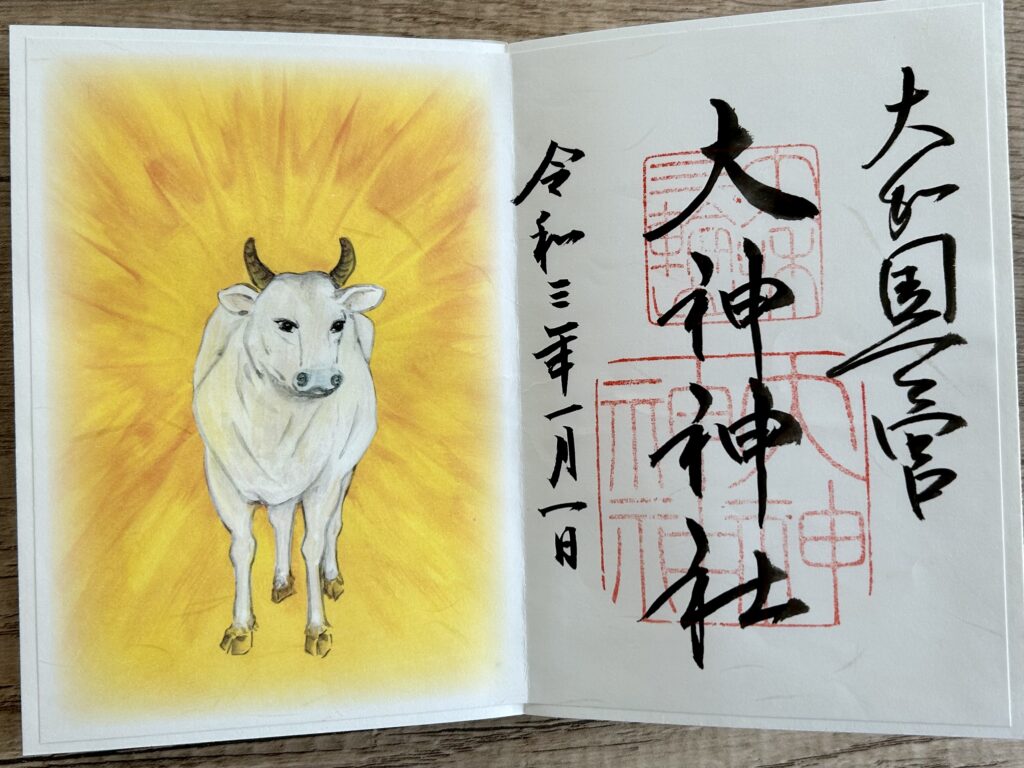 大和国一之宮
大神神社
令和三年一月一日